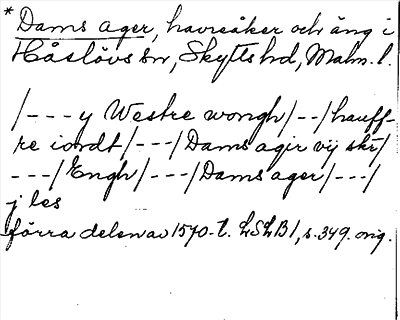 * Dams ager, havreåker och äng i
Håslövs sn, Skytts hd, Malm. l.
/---y Westre wongh/--/hauff-
re iordt/---/Dams agir vij skr/
---/Engh/---/Dams ager/---/
j les
förra delen av 1570-t. LSLB1, s. 349. orig.